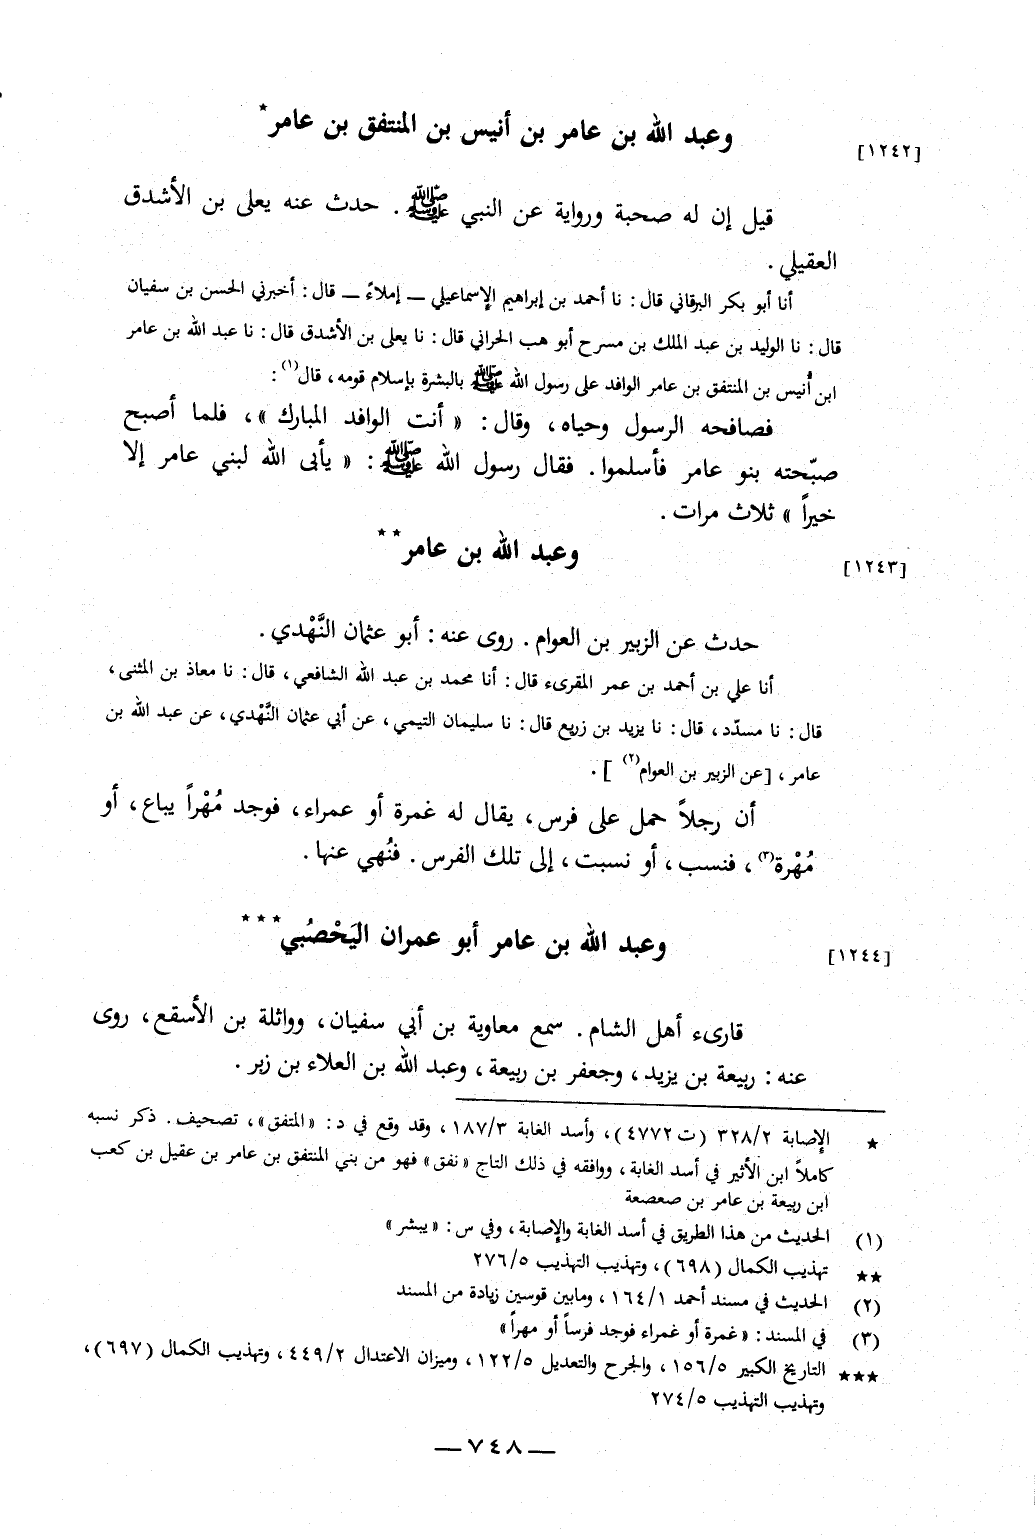 [١٢٤٢] وعبد الله بن عامر بن أنيس بن المنتفق بن عامر*
قيل إن له صحبة ورواية عن النبي ﷺ . حدث عنه يعلى بن الأشدق
العقيلي .
أنا أبو بكر البرقاني قال : نا أحمد بن إبراهيم الإسماعيلي ــ إملاءً ــ قال : أخبرني الحسن بن سفيان
قال : نا الوليد بن عبد الملك بن مسرح أبو هب الحراني قال : نا يعلى بن الأشدق قال : نا عبد الله بن عامر
ابن أُنيس بن المنتفق بن عامر الوافد على رسول الله ﷺ بالبشرة بإسلام قومه ، قال(١) :
فصافحه الرسول وحياه ، وقال : « أنت الوافد المبارك » ، فلما أصبح
صبّحته بنو عامر فأسلموا . فقال رسول الله ﷺ : « يأبى الله لبني عامر إلا
خيراً » ثلاث مرات .
[١٢٤٣] وعبد الله بن عامر**
حدث عن الزبير بن العوام . روى عنه : أبو عثمان النَّهْدي .
أنا علي بن أحمد بن عمر المقرىء قال : أنا محمد بن عبد الله الشافعي ، قال : نا معاذ بن المثنى ،
قال : نا مسدّد ، قال : نا يزيد بن زريع قال : نا سليمان التيمي ، عن أبي عثمان النَّهْدي ، عن عبد الله بن
عامر ، [عن الزبير بن العوام(٢) ] .
أن رجلاً حمل على فرس ، يقال له غمرة أو عمراء ، فوجد مُهْراً يباع ، أو
مُهْرة(٣) ، فنسب ، أو نسبت ، إلى تلك الفرس . فنُهي عنها .
[١٢٤٤] وعبد الله بن عامر أبو عمران اليَحْصُبي***
قارىء أهل الشام . سمع معاوية بن أبي سفيان ، وواثلة بن الأسقع ، روى
عنه : ربيعة بن يزيد ، وجعفر بن ربيعة ، وعبد الله بن العلاء بن زبر .
* الإصابة ٣٢٨/٢ (ت ٤٧٧٢) ، وأسد الغابة ١٨٧/٣ ، وقد وقع في د : «المتفق» ، تصحيف . ذكر نسبه
كاملاً ابن الأثير في أسد الغابة ، ووافقه في ذلك التاج «نفق» فهو من بني المنتفق بن عامر بن عقيل بن كعب
ابن ربيعة بن عامر بن صعصعة
(١) الحديث من هذا الطريق في أسد الغابة والإصابة ، وفي س : «يبشر»
** تهذيب الكمال (٦٩٨) ، وتهذيب التهذيب ٢٧٦/٥
(٢) الحديث في مسند أحمد ١٦٤/١ ، ومابين قوسين زيادة من المسند
(٣) في المسند : «غمرة أو غمراء فوجد فرساً أو مهراً»
*** التاريخ الكبير ١٥٦/٥ ، والجرح والتعديل ١٢٢/٥ ، وميزان الاعتدال ٤٤٩/٢ ، وتهذيب الكمال (٦٩٧) ،
وتهذيب التهذيب ٢٧٤/٥
— ٧٤٨ —